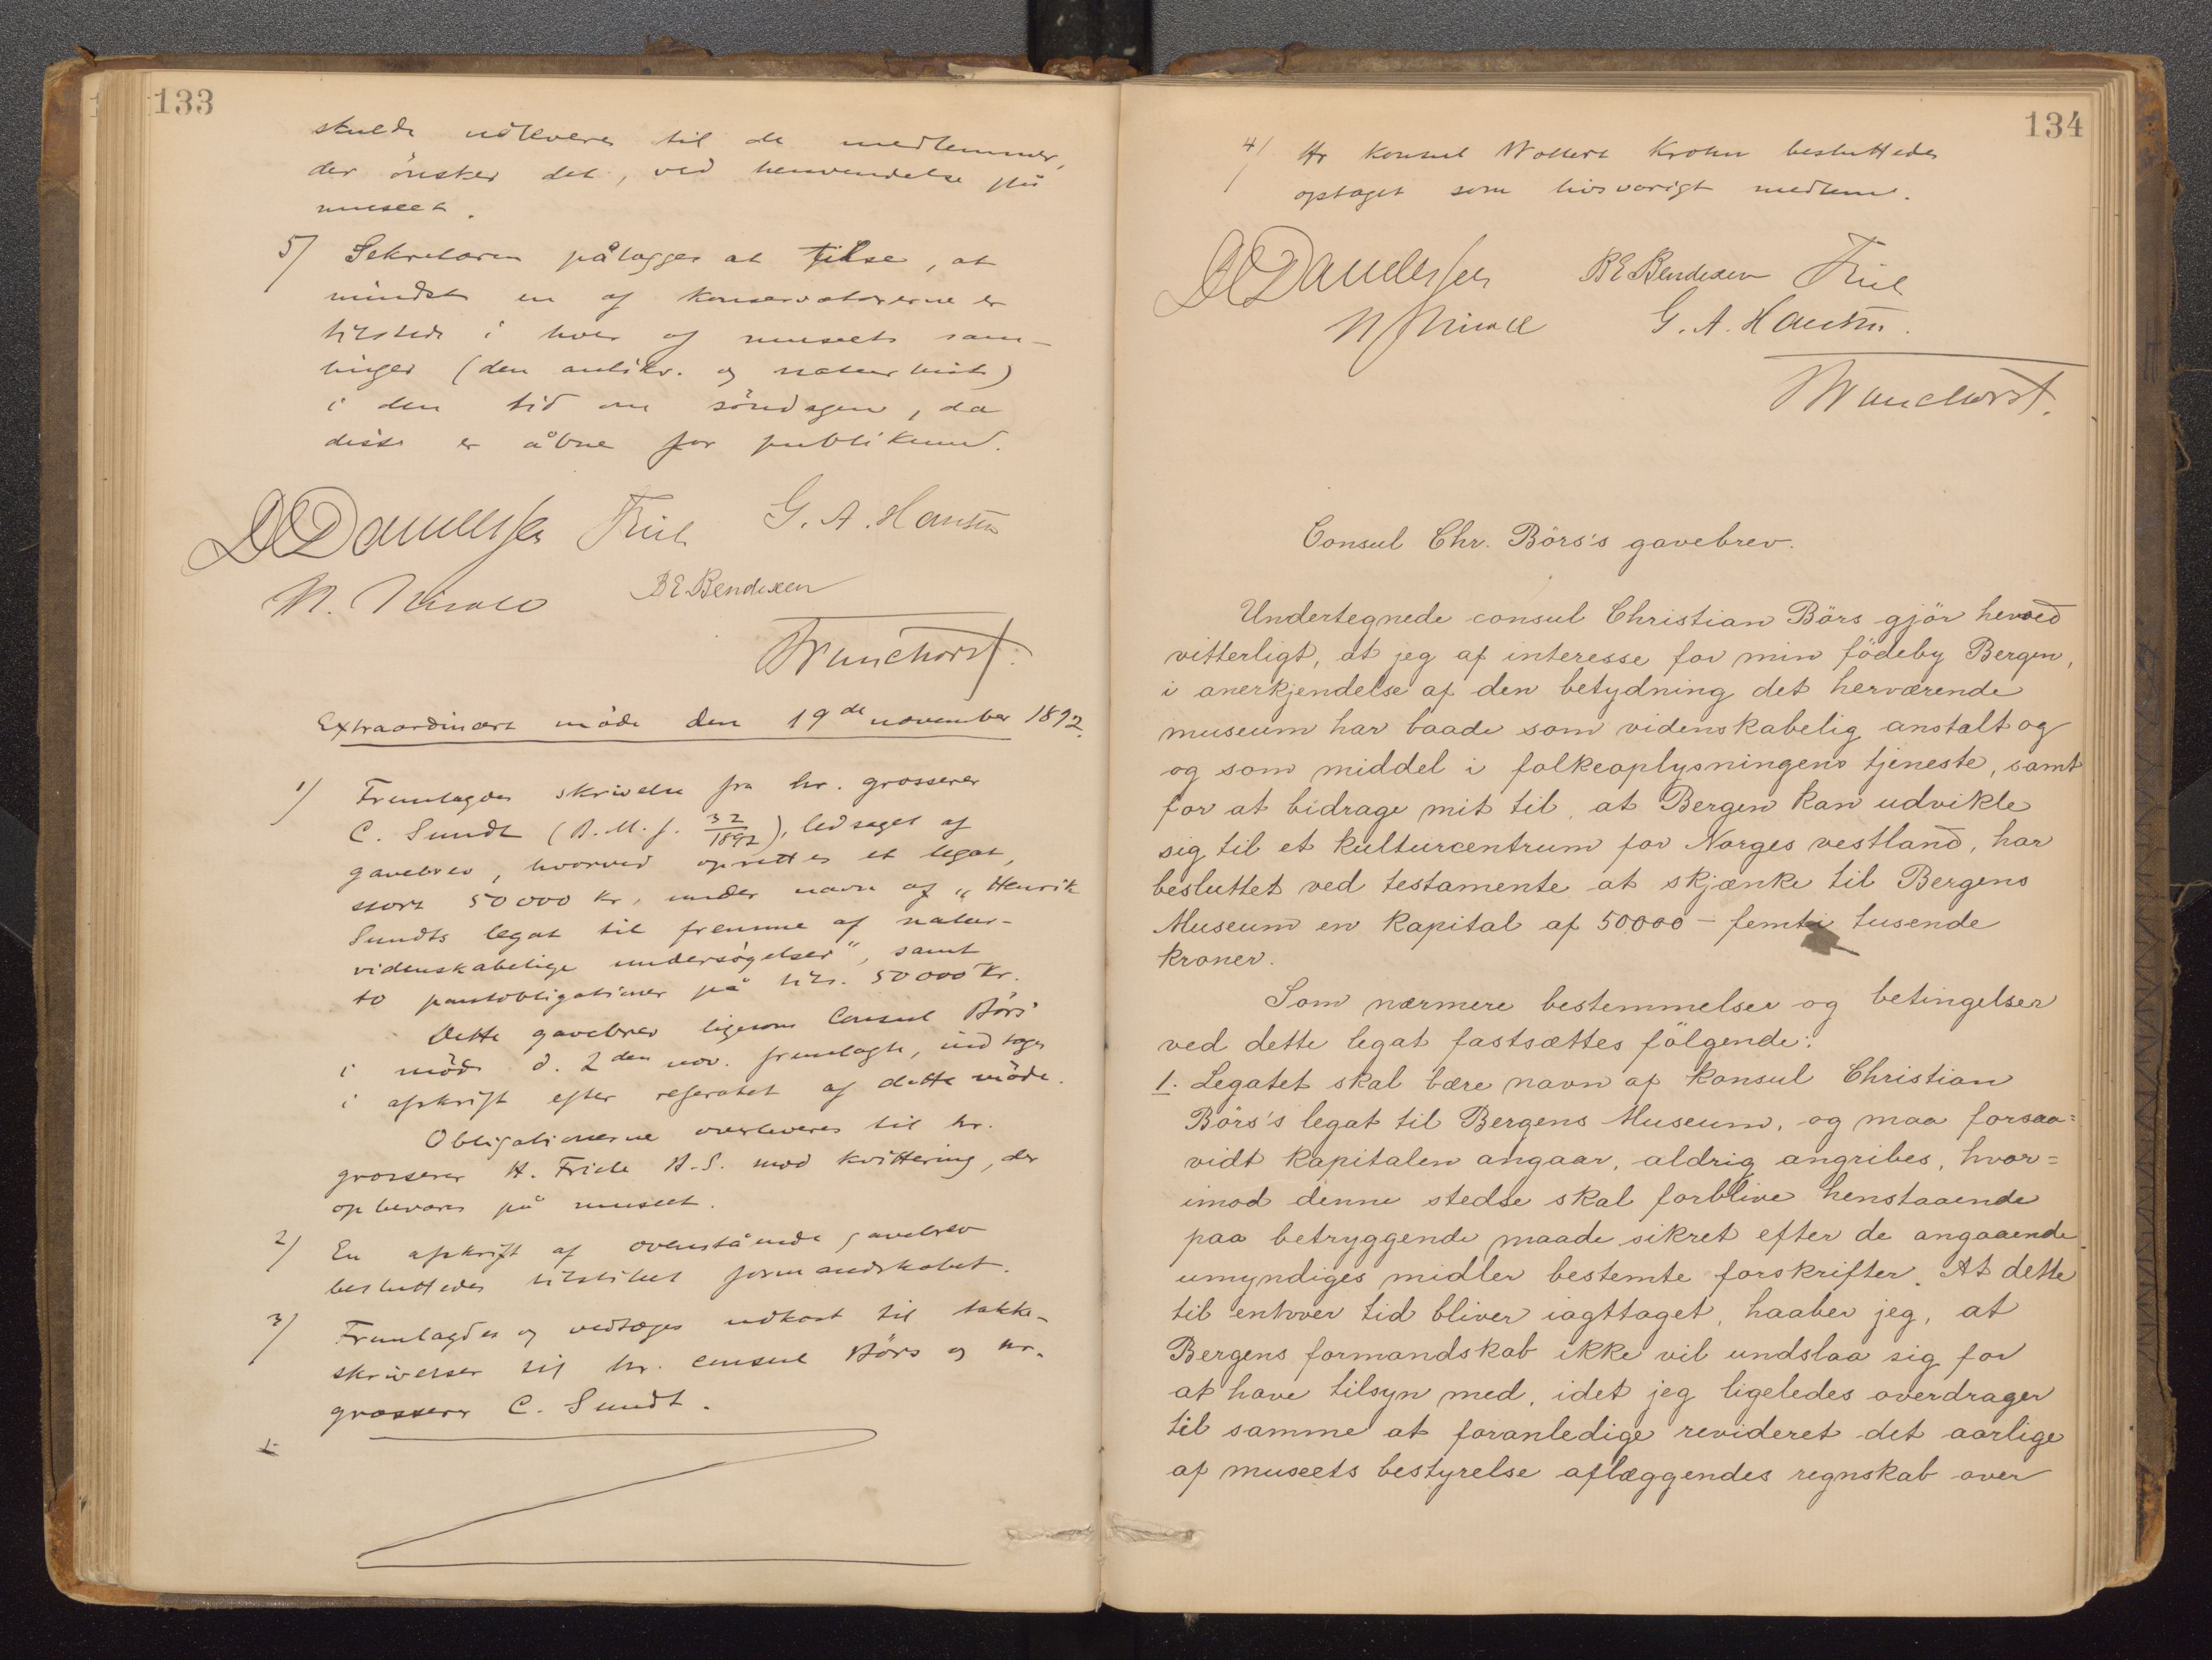 133
skulde udleveres til de medlemmer,
der önsker det, ved henvendelse på
museet.
5/ Sekretæren pålægges at tilse, at
mindst en af konservatorerne er
tilstede i hver af museets sam-
linger (den antikv. og naturhist)
i den tid om söndagen, da
disse er åbne for publikum.
DC Danielssen Friele G. A. Hansen
BE Bendixen
J Brunchorst.
Extraordinært möde den 19de november 1892.
1/ Fremlagdes skrivelse fra hr. grosserer
C. Sundt (B. M. j. 32/1892), ledsaget af
gavebrev, hvorved oprettes et legat,
stort 50000 kr, under navn af „Henrik
Sundts legat til fremme af natur-
videnskabelige undersøgelser", samt
to pantobligationer på tils. 50000 Kr.
Dette gavebrev ligesom Consul Börs'
i möde d. 2den nov. fremlagte, indtages
i afskrift efter referatet af dette möde.
Obligationerne overleveres til hr.
grosserer H. Friele A.S. mod kvittering, der
opbevares på museet.
2/ En afskrift af ovenstående gavebrev
besluttedes tilstillet formandskabet.
3/ Fremlagdes og vedtoges udkast til takke-
skrivelser til hr. consul Börs og hr.
grosserer C. Sundt.
134
4/ Hr konsul Wollert Krohn besluttedes
optaget som livsvarigt medlem.
DC Danielssen BE Bendixen Friele
G. A. Hansen.
J Brunchorst.
Consul Chr. Börs's gavebrev.
Undertegnede consul Christian Börs gjör herved
vitterligt, at jeg af interesse for min födeby Bergen,
i anerkjendelse af den betydning det herværende
museum har baade som videnskabelig anstalt og
og som middel i folkeoplysningens tjeneste, samt
for at bidrage mit til, at Bergen kan udvikle
sig til et kulturcentrum for Norges vestland, har
besluttet ved testamente at skjænke til Bergens
Museum en kapital af 50.000 – femti tusende
kroner.
Som nærmere bestemmelser og betingelser
ved dette legat fastsættes fölgende:
1. Legatet skal bære navn af konsul Christian
Börs's legat til Bergens Museum, og maa forsaa=
vidt kapitalen angaar, aldrig angribes, hvor=
imod denne stedse skal forblive henstaaende
paa betryggende maade sikret efter de angaaende
umyndiges midler bestemte forskrifter. At dette
til enhver tid bliver iagttaget, haaber jeg, at
Bergens formandskab ikke vil undslaa sig for
at have tilsyn med, idet jeg ligeledes overdrager
til samme at foranledige revideret det aarlige
af museets bestyrelse aflæggendes regnskab over